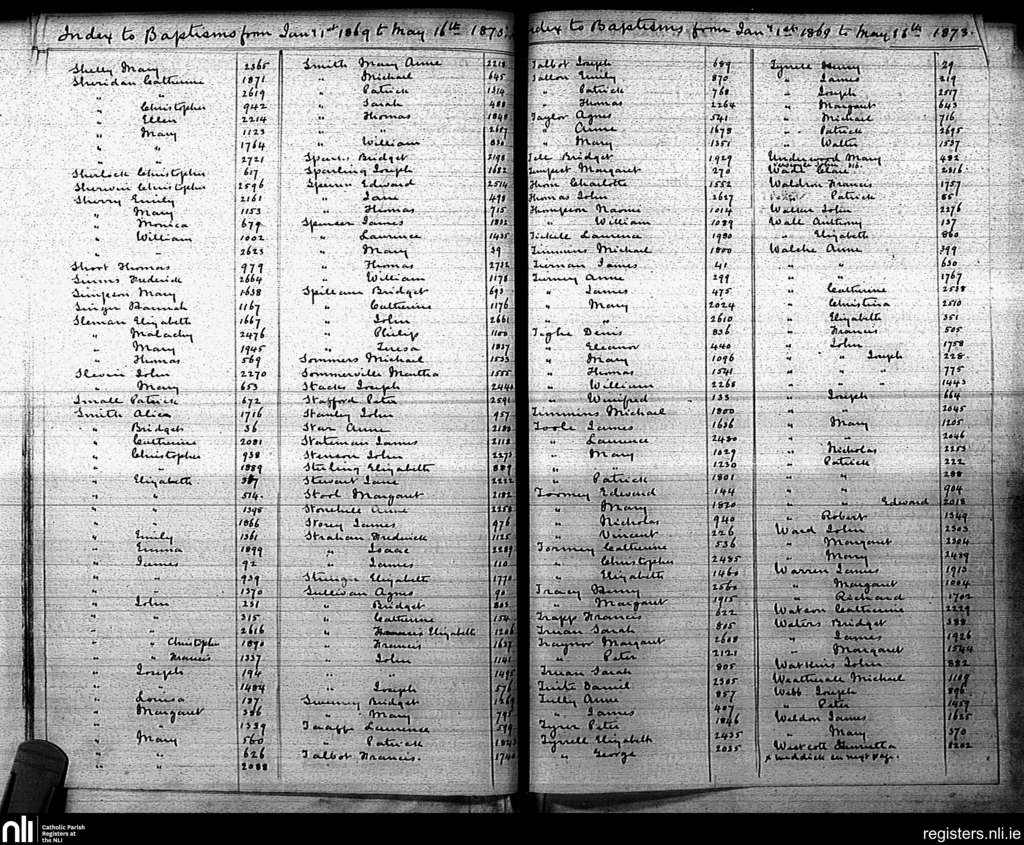 Index to Baptisms from Jany 1st 1869 to May 16th 1873.
Shelly Mary 2365
Sheridan Catherine 1871
" " 2619
" Christopher 942
" Ellen 2214
" Mary 1123
" " 1764
" " 2721
Sherlock Christopher 617
Sherwin Christopher 2596
Sherry Emily 2161
" Mary 1153
" Monica 679
" William 1002
" " 2623
Short Thomas 979
Simms Frederick 2664
Simpson Mary 1638
Singer Hannah 1167
Sleman Elizabeth 1667
" Malachy 2476
" Mary 1945
" Thomas 569
Slevin John 2270
" Mary 653
Small Patrick 672
Smith Alice 1716
" Bridget 36
" Catherine 2081
" Christopher 938
" " 1889
" Elizabeth
" " 514
" " 1398
" " 1866
" Emily 1361
" Emma 1899
" James 92
" " 939
" " 1370
" John 231
" " 315
" " 2616
" " Christopher 1890
" " Francis 1337
" Joseph 194
" " 1484
" Louisa 187
" Margaret 386
" " 1339
" Mary 560
" " 626
" " 2088
Smith Mary Anne 2218
" Michael 645
" Patrick 1314
" Sarah 488
" Thomas 1840
" " 2687
" William 830
Spars. Bridget 2198
Sparling Joseph 1682
Spenn Edward 2514
" Jane 498
" Thomas 715
Spencer James 1832
" Laurence 1435
" Mary 39
" Thomas 2732
" William 1178
Spillean Bridget 693
" Catherine 1176
" John 2661
" Philip 1100
" Teresa 1837
Sommers Michael 1533
Sommerville Martha 1555
Stacks Joseph 2444
Stafford Peter 2591
Stanley John 957
Star Anne 2180
Stateman James 2118
Stenson John 2273
Stirling Elizabeth 889
Stewart Jane 2222
Stool Margaret 2182
Stonehill Anne 2258
Storey James 976
Strahan Frederick 1125
" Isaac 2289
" James 110
Sturgis Elizabeth 1770
Sullivan Agnes 90
" Bridget 803
" Catherine 154
" Francis Elizabeth 1206
" Francis 1637
" John 1141
" " 1495
" Joseph 576
Sweeney Bridget 1269
" Mary 795
Swapp Laurence 599
" Patrick 1843
Talbot Francis. 1740
Index to Baptisms from Jany 1st 1869 to May 16th 1873.
Talbot Joseph 689
Tallon Emily 870
" Patrick 768
" Thomas 2264
Taylor Agnes 541
" Anne 1678
" Mary 1351
Tell Bridget 1929
Tempest Margaret 270
Thom Charlotte 1552
Thomas John 2627
Thompson Naomi 1014
" William 1089
Tickell Laurence 1980
Timmins Michael 1800
Tiernan James 41
Tierney Anne 299
" James 475
" Mary 2024
" " 2610
Tighe Denis 836
" Eleanor 440
" Mary 1096
" Thomas 1541
" William 2268
" Winifred 133
Timmins Michael 1800
Toole James 1636
" Laurence 2430
" Mary 1029
" " 1230
" Patrick 1801
Toomey Edward 144
" Mary 1820
" Nicholas 940
" Vincent 226
Tormey Catherine 536
" Christopher 2485
" Elizabeth 1460
Tracey Henry 2562
" Margaret 1915
Trapp Francis 622
Truan Sarah 805
Traynor Margaret 2608
" Peter 2121
Truan Sarah 805
Tuite Daniel 2305
Tully Anne 857
" James 407
Tyner Peter 1846
Tyrrell Elizabeth 2435
" George 2035
Tyrrell Henry 29
" James 219
" Joseph 2017
" Margaret 643
" Michael 716
" Patrick 2695
" Walter 1537
Underwood Mary 482
Wade Clare 2316
Waldron Francis 1757
" Patrick 85
Walker John 2376
Wall Anthony 137
" Elizabeth 860
Walshe Anne 399
" " 630
" " 1767
" Catherine 2538
" Christina 2510
" Elizabeth 351
" Francis 505
" John 1758
" " Joseph 228
" " 775
" " 1443
" Joseph 664
" " 2045
" Mary 1205
" " 2046
" Nicholas 2253
" Patrick 222
" " 288
" " 904
" " Edward 2018
" Robert 1349
Ward John 2303
" Margaret 2304
" Mary 2489
Warren James 1913
" Margaret 1004
" Richard 1702
Watson Catherine 2229
Waters Bridget 388
" James 1926
" Margaret 1544
Watkins John 882
Weatherall Michael 1109
Webb Joseph 896
" Peter 1459
Weldon James 1625
" Mary 370
Westcott Henrietta
x Weddick on next page.
nli
Catholic Parish
Registers at
the NLI
registers.nli.ie